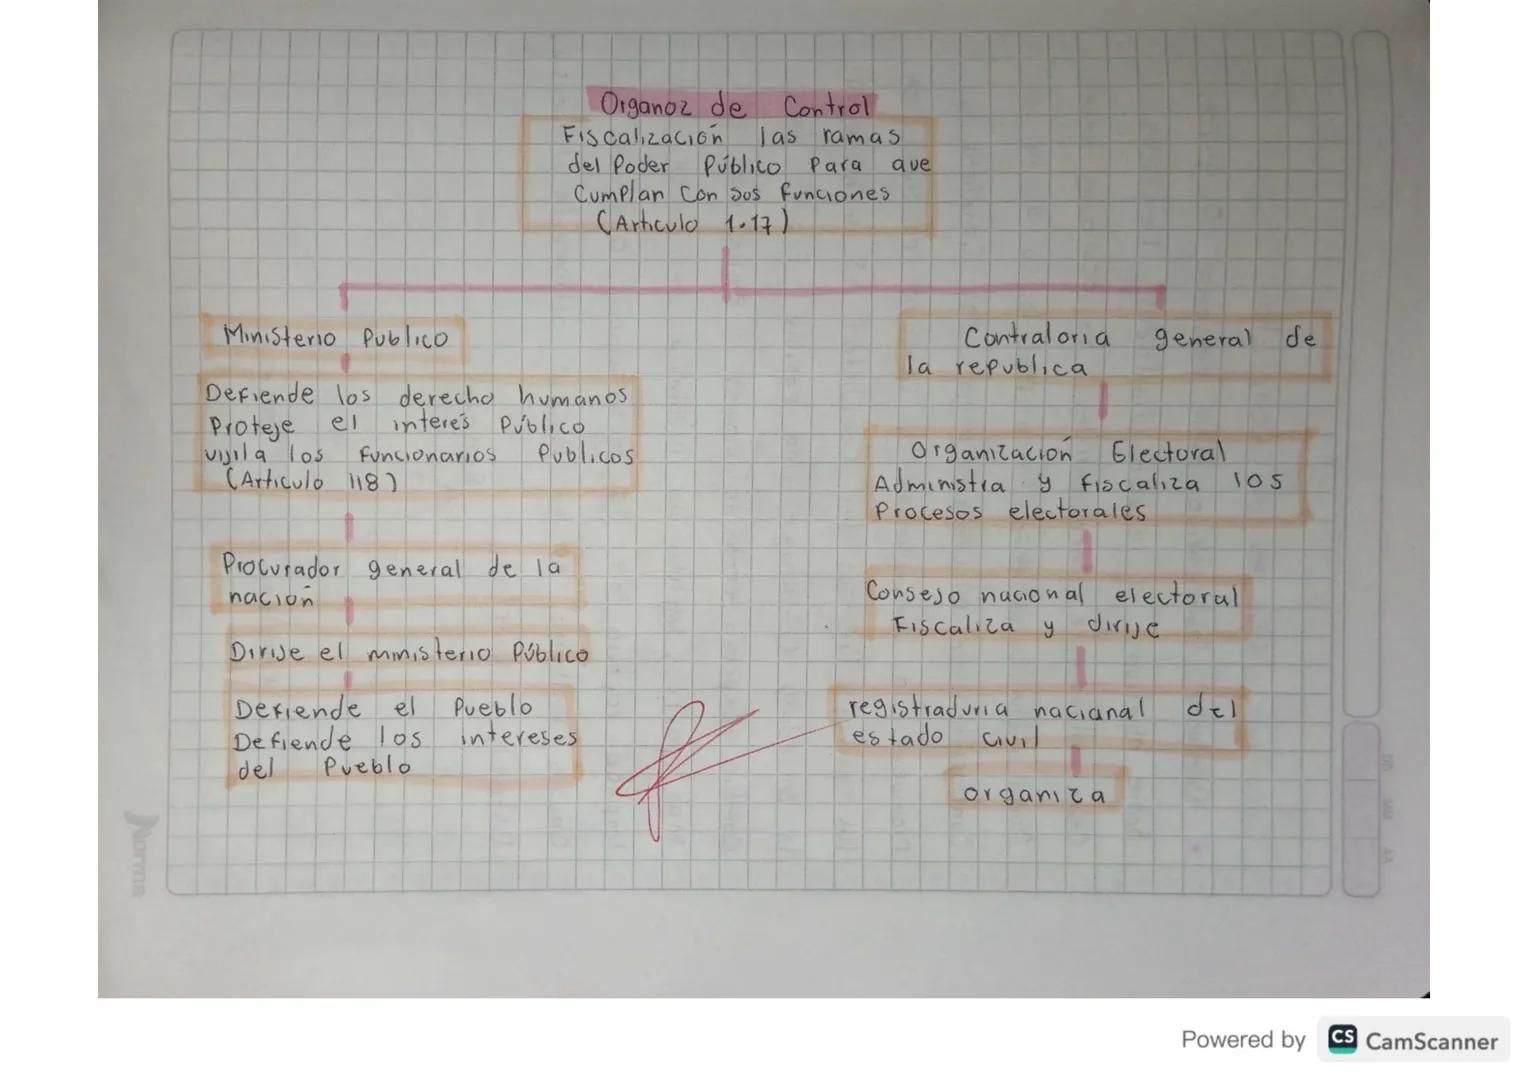 Organoz de Control
Fiscalización las ramas
del Poder Público Para que
Cumplan Con sus funciones
(Articulo 1.17)
Ministerio Publico
Defiende los derecho humanos
Proteje el interés Público
vijila los funcionarios Publicos
(Articulo 118)
Procurador general de la
nación
Dirije el ministerio Público
Defiende el Pueblo
Defiende los intereses
del Pueblo
Contraloria general de
la republica
Organización Electoral
Administra y fiscaliza los
Procesos electorales
Consejo nacional electoral
Fiscaliza y dirije
registraduria nacianal del
estado civil
organiza
Norma
DD MM AA
Powered by CS CamScanner